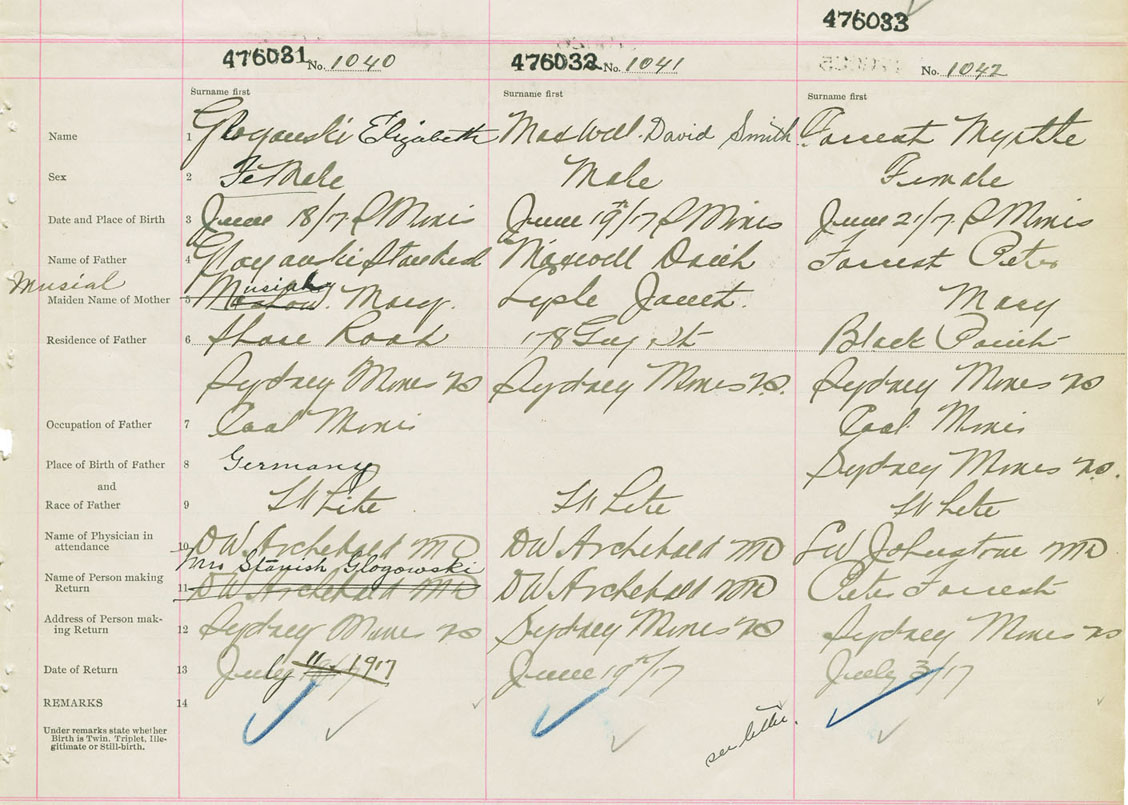 476033
476031 No. 1040
476032 No. 1041
No. 1042
Surname first Surname first Surname first
Name 1 Elizabeth Maxwell David Smith Forrest Myrtle
Sex 2 Female Male Female
Date and Place of Birth 3 June 18/17 S Mines June 19th/17 S Mines June 21/17 S Mines
Name of Father 4 Maxwell David Forrest Peter
Musial
Maiden Name of Mother 5 Musial Mary. Lysle Janet. Mary
Residence of Father 6 Shore Road 178 Guy St Black Point
Sydney Mines NS Sydney Mines N.S. Sydney Mines NS
Occupation of Father 7 Coal Miner Coal Miner
Place of Birth of Father 8 Germany Sydney Mines N.S.
and
Race of Father 9 White White White
Name of Physician in
attendance 10 DW Archibald MD DW Archibald MD LW Johnstone MD
Mrs Stanish Glogowski
Name of Person making
Return 11 DW Archibald MD DW Archibald MD Peter Forrest
Address of Person mak-
ing Return 12 Sydney Mines NS Sydney Mines NS Sydney Mines NS
Date of Return 13 July 1917 June 19th/17 July 3/17
REMARKS 14
see letter.
Under remarks state whether
Birth is Twin, Triplet, Ille-
gitimate or Still-birth.